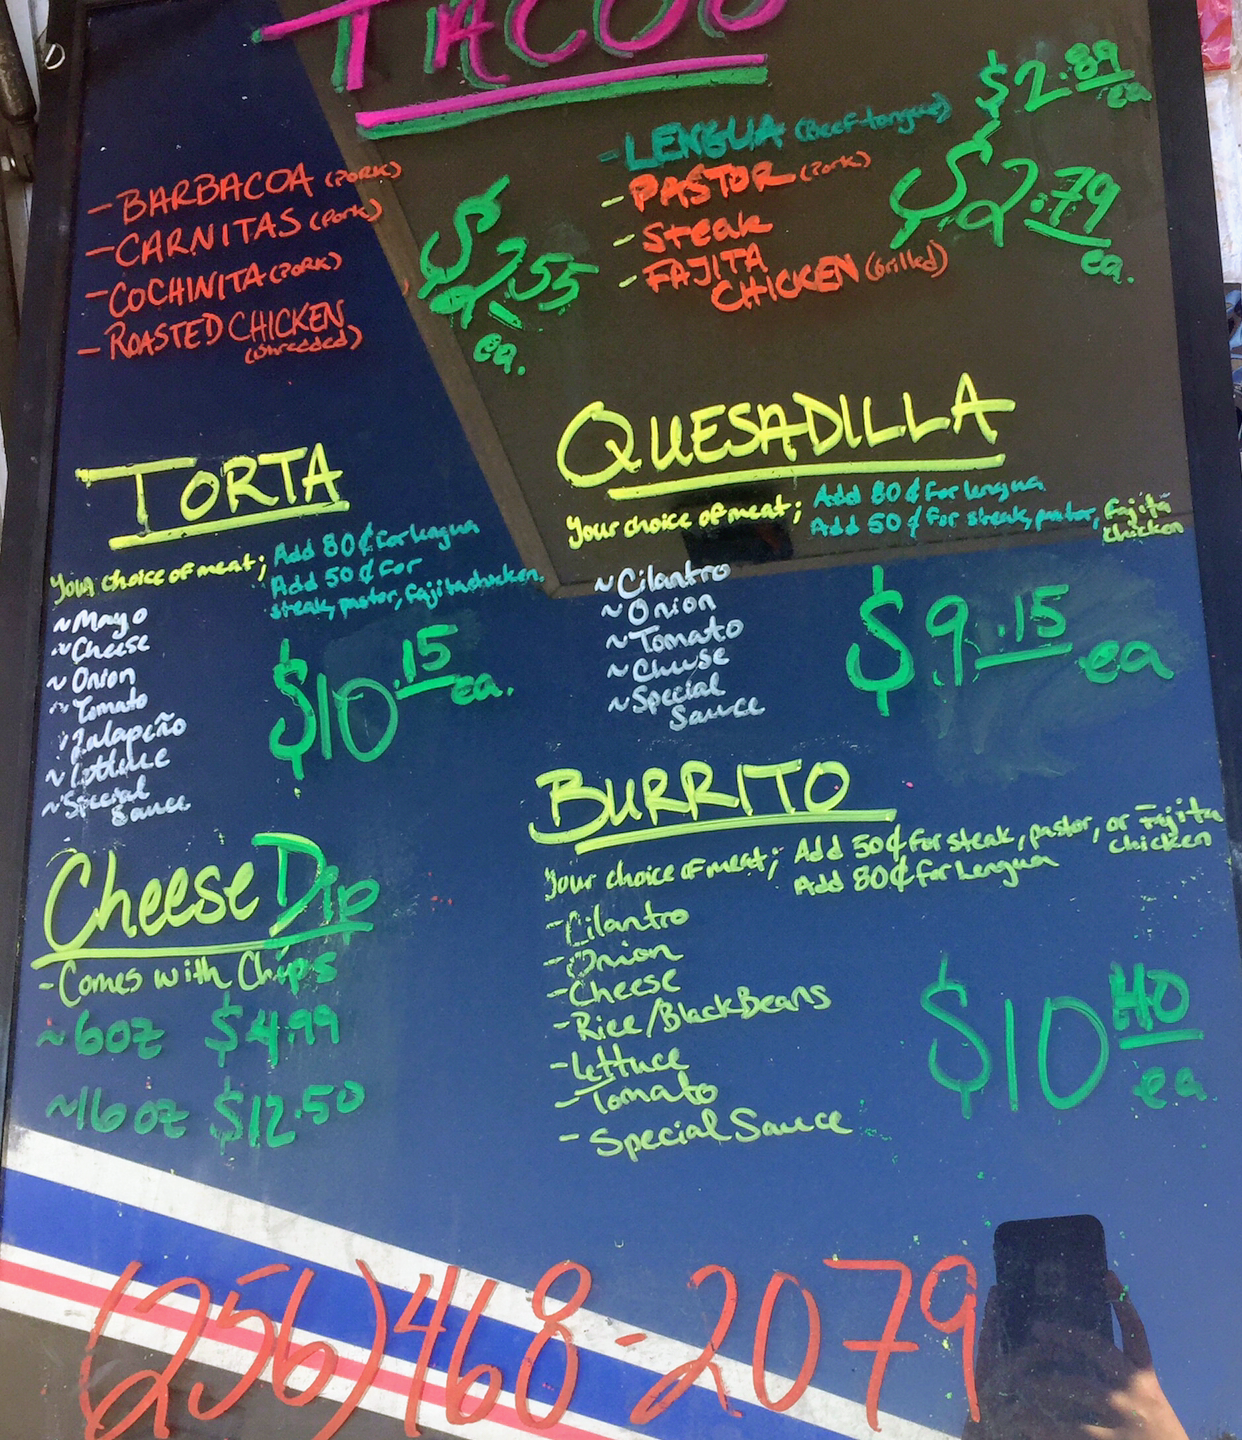 TACOS
- BARBACOA (Pork)
- CARNITAS (Pork)
- COCHINITA (Pork)
- ROASTED CHICKEN
(Shredded)
$2.55
ea.
- LENGUA (Beef-tongue)
$2.89
ea
- PASTOR (Pork)
- Steak
- FAJITA
CHICKEN (Grilled)
$2.79
ea.
TORTA
Your choice of meat; Add 80¢ for lengua
Add 50¢ for
steak, pastor, fajita chicken.
~Mayo
~Cheese
~Onion
~Tomato
~Jalapeño
~Lettuce
~Special
Sauce
$10.15
ea.
QUESADILLA
Your choice of meat; Add 80¢ for lengua
Add 50¢ for steak, pastor, fajita
chicken
~Cilantro
~Onion
~Tomato
~Cheese
~Special
Sauce
$9.15 ea
Cheese Dip
- Comes with Chips
~6oz $4.99
~16oz $12.50
BURRITO
Your choice of meat; Add 50¢ for steak, pastor, or Fajita
chicken
Add 80¢ for Lengua
- Cilantro
- Onion
- Cheese
- Rice/Black Beans
- Lettuce
- Tomato
- Special Sauce
$10 40
ea
(256)468-2079